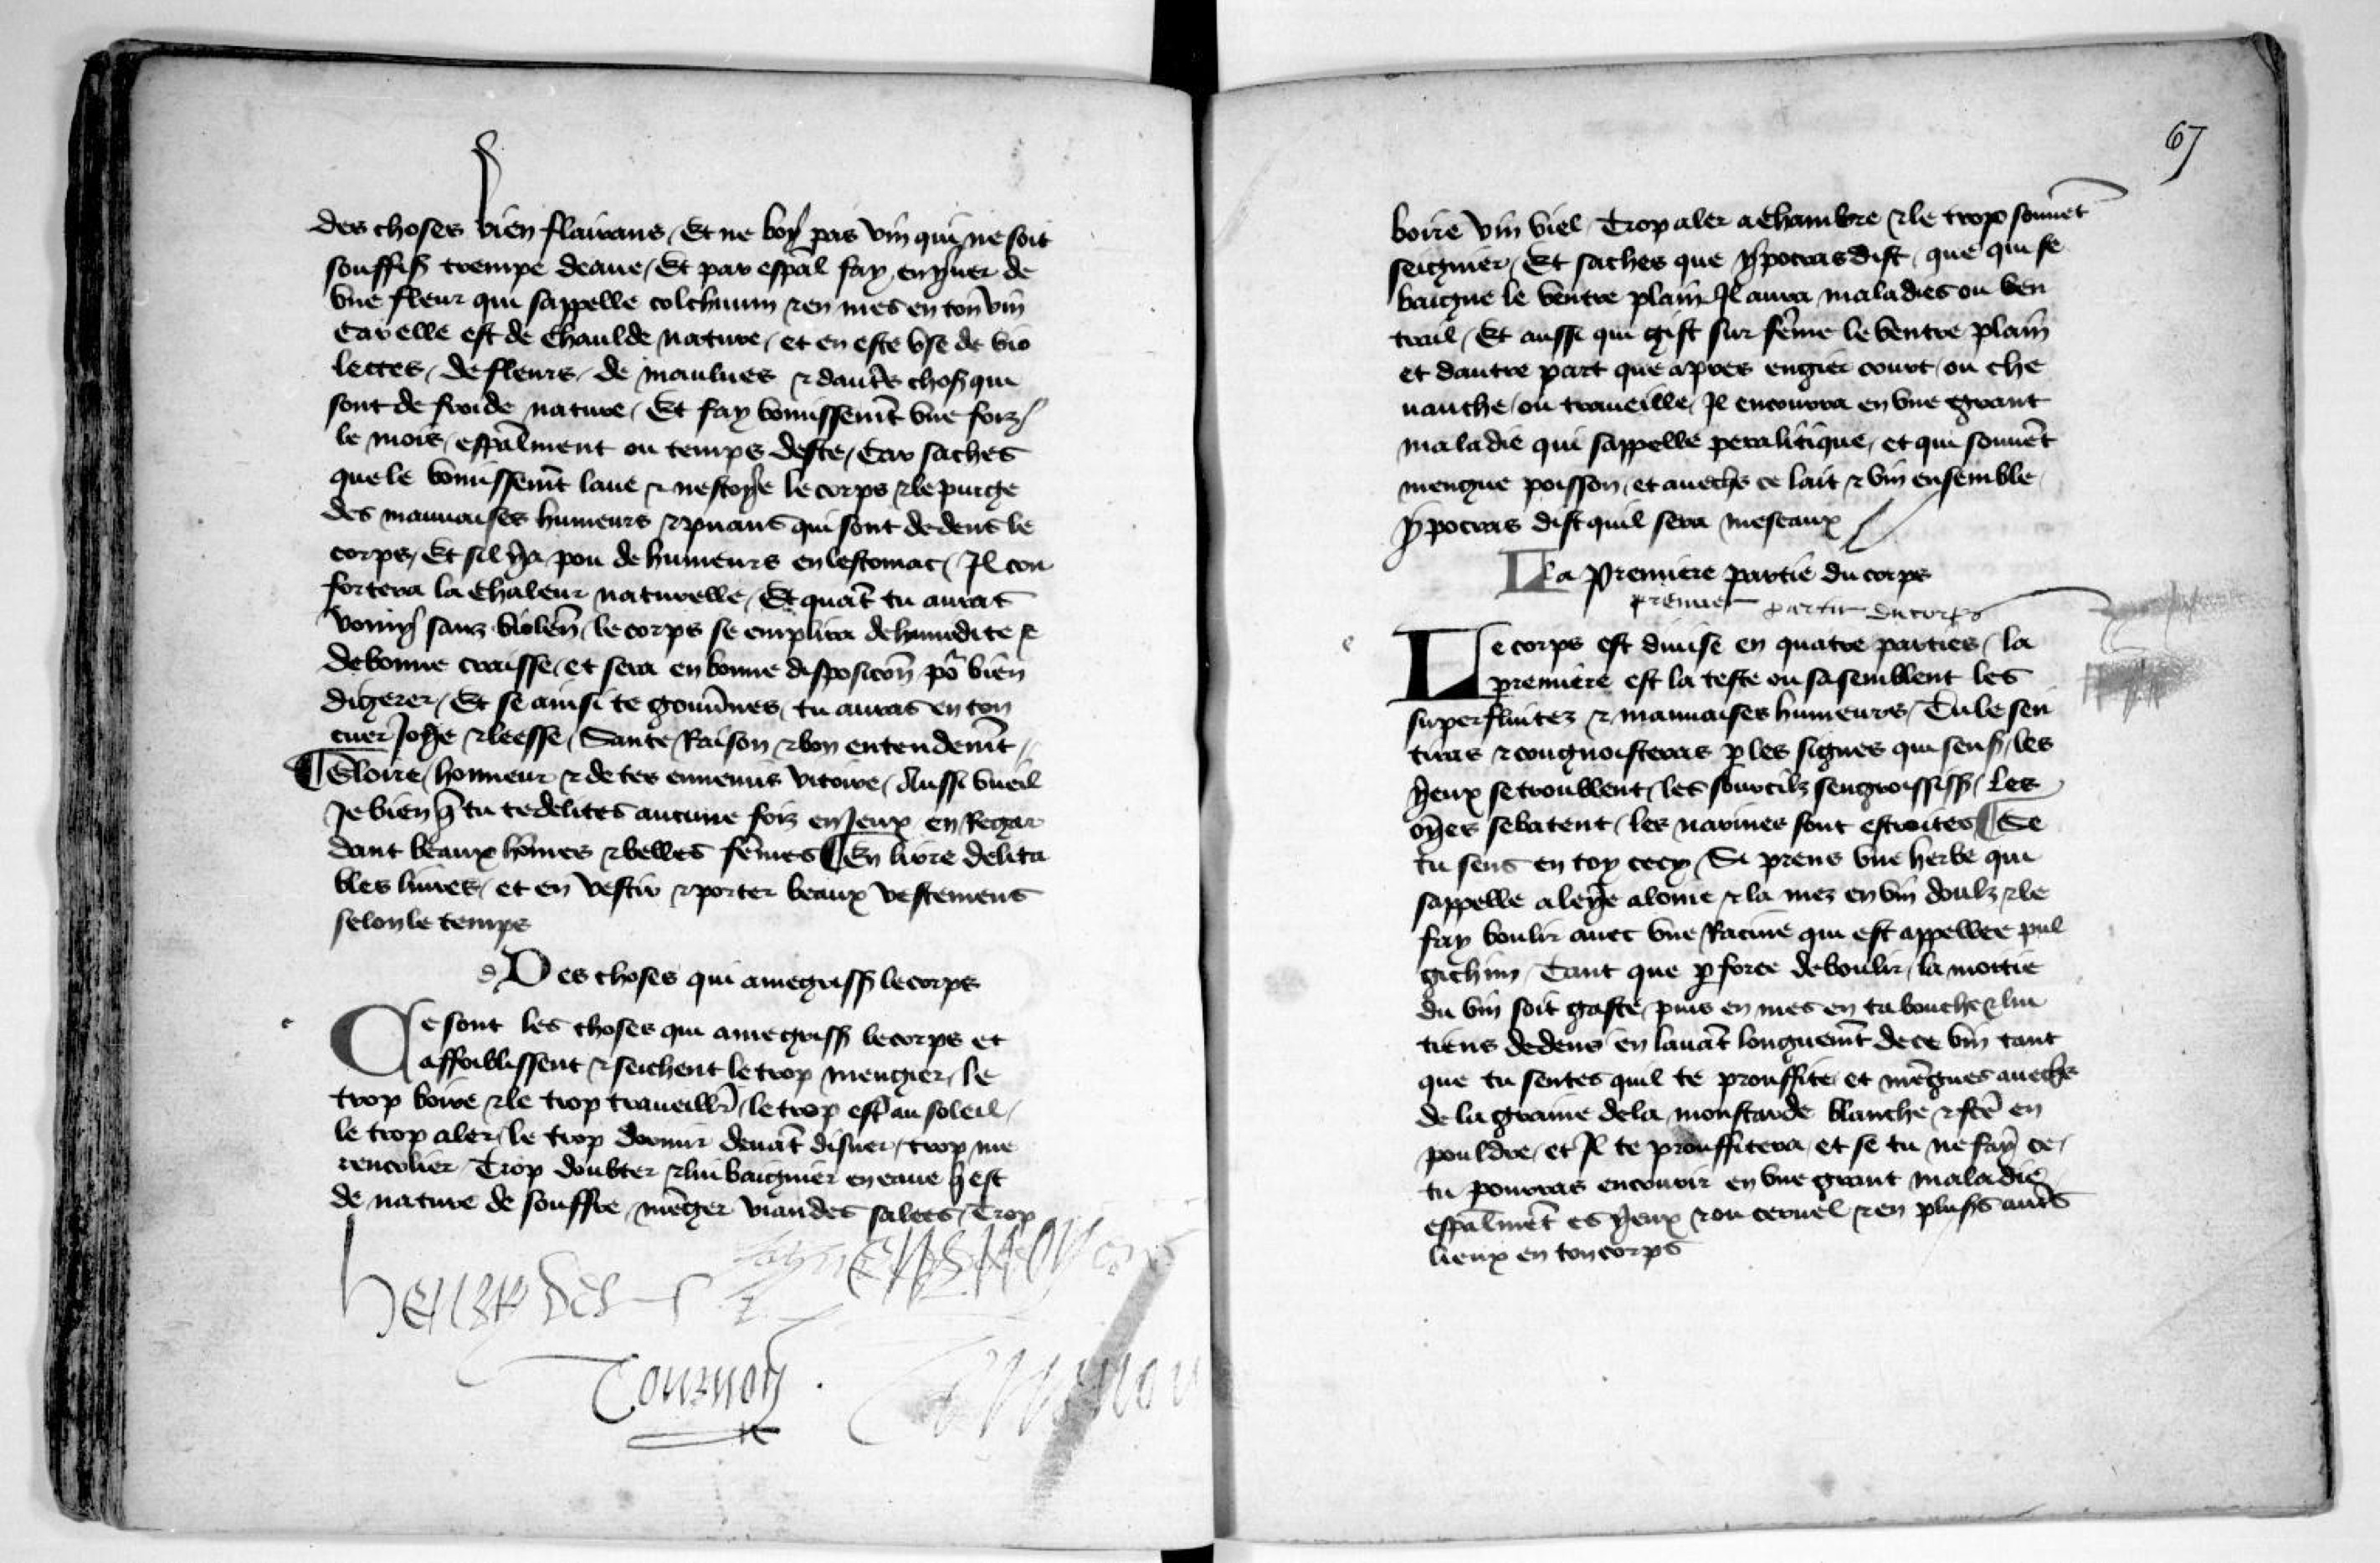 des choses bien flairans / Et ne boy pas vin qui ne soit
souffiss trempe deaue / Et par espal fay en yver de
vne fleur qui sappelle colchum ⁊ en mes en ton vin
Car elle est de chaulde nature / et en este vse de vio
lettes / de fleurs / de maulues ⁊ daut̃s chos̃ qui
sont de froide nature / Et fay vomissem̃t vne foiz /
le mois / esp̃alment ou temps deste / Car saches
que le vomissem̃t laue ⁊ nestoye le corps ⁊ le purge
des mauuaises humeurs ⁊ puans qui sont dedens le
corps / Et sil y a pou de humeurs en lestomac / Jl con
fortera la chaleur naturelle / Et quãt tu auras
vomy sanz violen̄ / le corps se emplira de humidite ⁊
de bonne craisse / et sera en bonne disposicoñ po᷑ bien
digerer / Et se ainsi te gouũnes / tu auras en ton
cuer Joye ⁊ leesse / Sante Raison ⁊ bon entendem̃t /
¶ Gloire / honneur ⁊ de tes ennemis vitoire / Aussi vueil
Je bien q̃ tu te delites aucune foiz en Jeux en Regar
dant beaux hõmes ⁊ belles fẽmes ¶ En livre delita
bles liures / et en vestir ⁊ porter beaux vestemens
selon le temps
d Des choses qui amegriss̃ le corps
c Ce sont les choses qui amegriss̃ le corps et
affoiblissent ⁊ seichent le trop mengier / le
trop boire ⁊ le trop traueillr̃ / le trop est̃ au soleil /
le trop aler / le trop dormir deuãt disner / trop me
rencolier / Trop doubter ⁊ lui baignier en eaue q̃ est
de nature de souffre / mẽger viandes salees / Trop
henry des
Tournon
67
boire vin viel / Trop aler a chambre ⁊ le trop souuẽt
seignier / Et saches que ypocras dist / que qui se
baigne le ventre plain Jl aura maladies ou ven
trail / Et aussi qui gist sur fẽme le ventre plain
et dautre part que apres engier court / ou che
uauche / ou traueille / Jl encourra en vne grant
maladie qui sappelle peralitique / et qui souuẽt
mengue poisson / et auechs ce lait ⁊ vin ensemble
ypocras dist quil sera meseaux
La premiere partie du corps
premier partir du corps
e Le corps est diuise en quatre parties / la
premiere est la teste ou sasemblent les
superfluitez ⁊ mauuaises humeurs / Tu le sen
tiras ⁊ congnoisteras p̱ les signes qui sens̃ / les
yeux se troublent / les sourcilz sengroississ̃ / Les
oyes se batent / les narines sont estroites ¶ Se
tu sens en toy cecy / Si prens vne herbe qui
sappelle aleyne aloine ⁊ la mez en vin doulz ⁊ le
fay boulir auec vne Racine qui est appellee pul
gichim / Tant que p̱ force de boulir / la moitie
du vin soit gaste / puis en mes en ta bouche ⁊ lui
tiens dedens en lauãt longuem̃t de ce vin tant
que tu sentes quil te prouffite / et mẽgues auechs
de la graine de la moustarde blanche ⁊ fc̃e en
pouldre / et Jl te prouffitera / et se tu ne fay ce /
tu pourras encourir en vne grant maladie
esp̃alm̃et es yeux ⁊ ou ceruel ⁊ en plus̃s aut̃s
lieux en ton corps